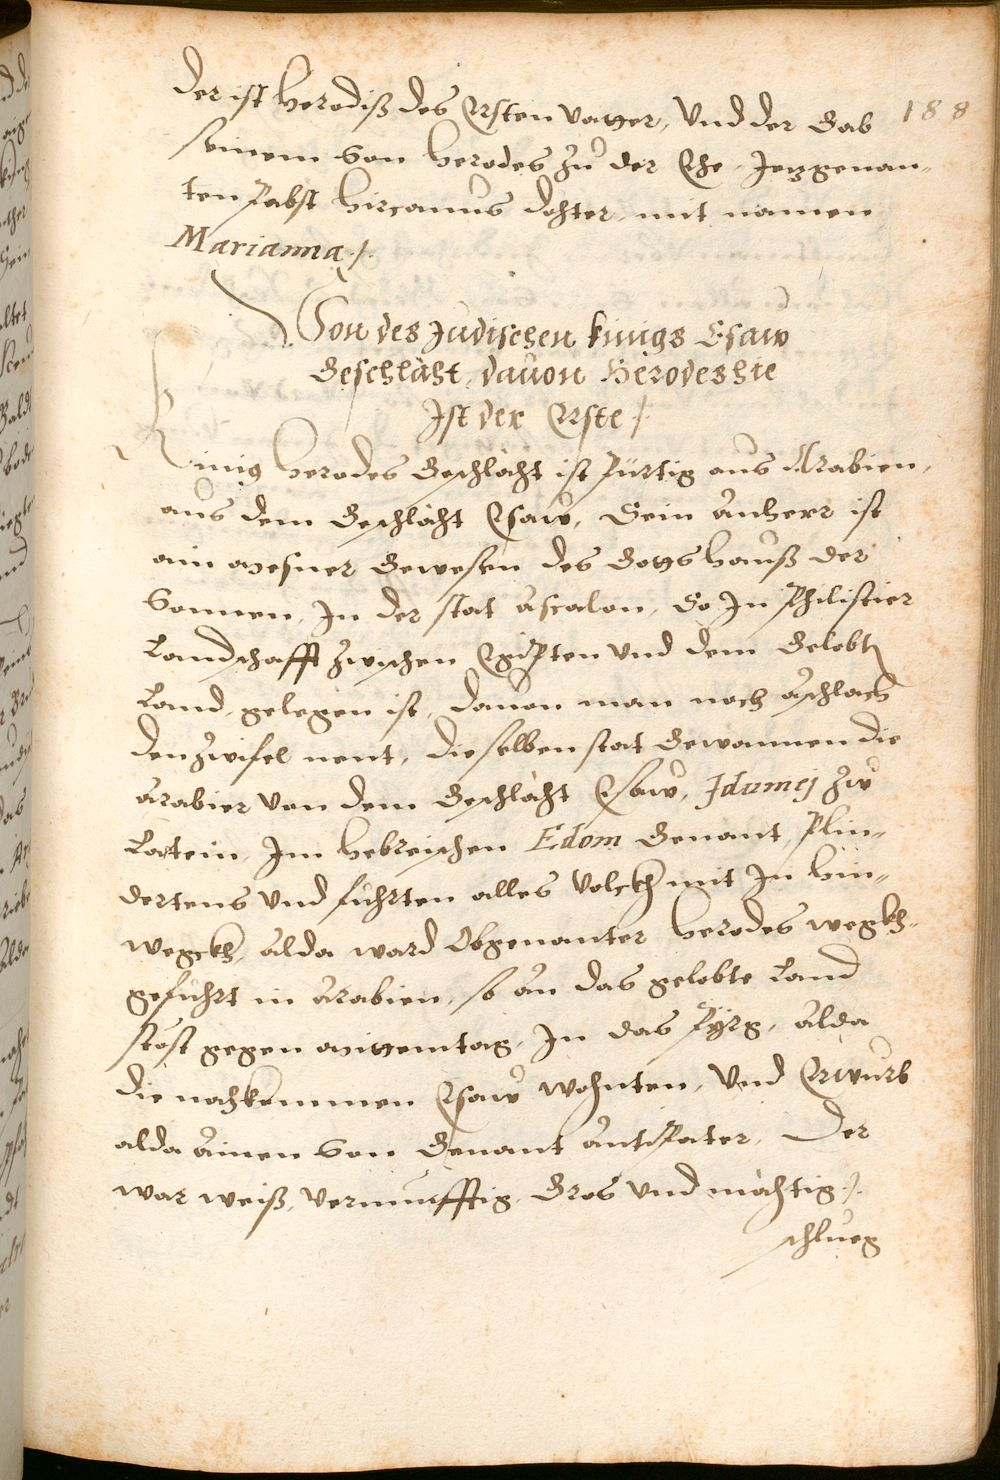 188
Der ist Herodiß des Ersten vatter, Und der Gab
seinem Son Herodes Zu der Ehe, Jezgenan„
ten Pabst Hircanus dohter, mit namen
Marianna ./.
Von des Judischen kinigs Esaw
Geschlächt, dauon Herodes hie
Ist der Erste ./.
Kinig Herodes Geschlächt ist Pürtig aus Arabien,
aus dem Geschlächt Esaw, Sein anherr ist
ain mesner Gewesen des Gotts hauß der
Sonnen, In der stat Ascalon, So In Philistier
Landschafft zwischen Egipten vnd dem Gelobtn
Land gelegen ist, dauon man noch aschlach
den zwifel nent, dieselben stat Gewannen die
Arabier von dem Geschlächt Esaw, Idumej zu
Latein, Im Hebreischen Edom Genant, Plin„
dertens vnd fuhrten alles volckh mit In hin„
wegckh, alda ward Obgenanter Herodes wegkh„
gefuhrt in Arabien, so an das gelobte Land
stost gegen mittemtag, In das Pyrg, alda
die nachkommen Esaw wohnten, Vnd Erwurb
alda ainen Son Genant antipater, Der
war weiß, vernunfftig, Gros vnd mächtig ./.
schlueg